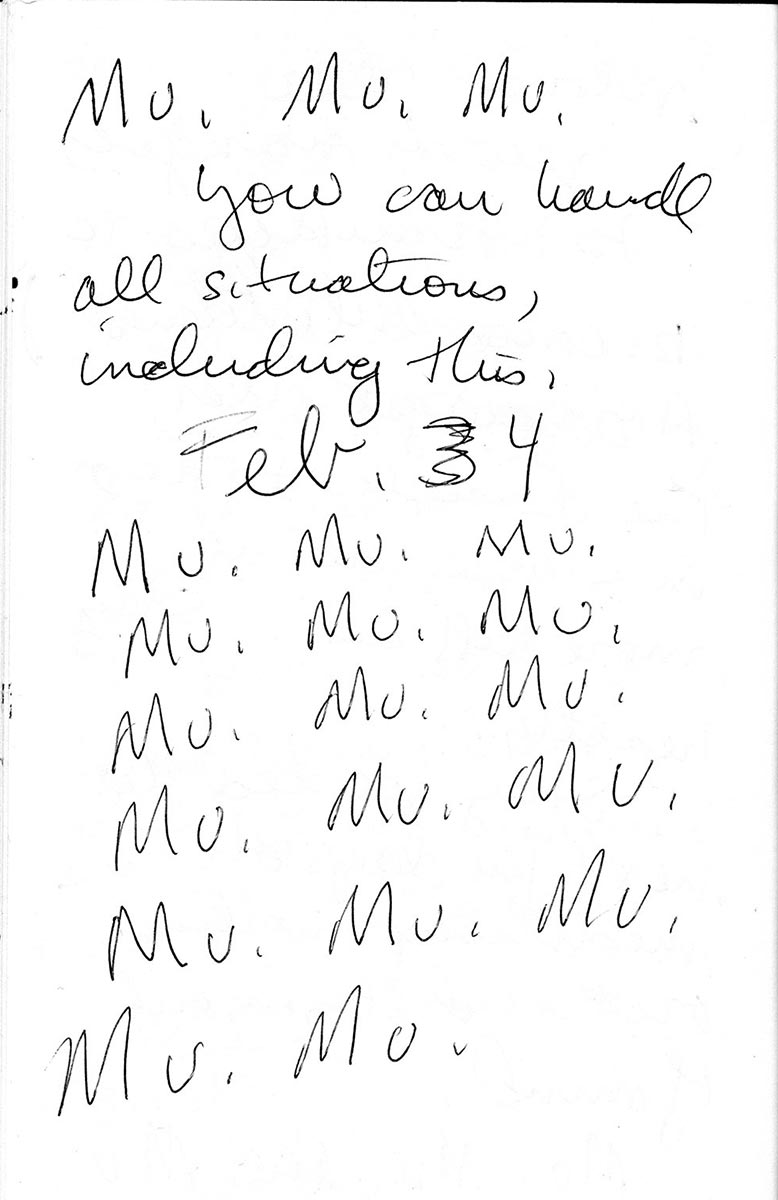 Mu. Mu. Mu.
You can handl
all situations,
including this.
Feb. 4
Mu. Mu. Mu.
Mu. Mu. Mu.
Mu. Mu. Mu.
Mu. Mu. Mu.
Mu. Mu. Mu.
Mu. Mu.